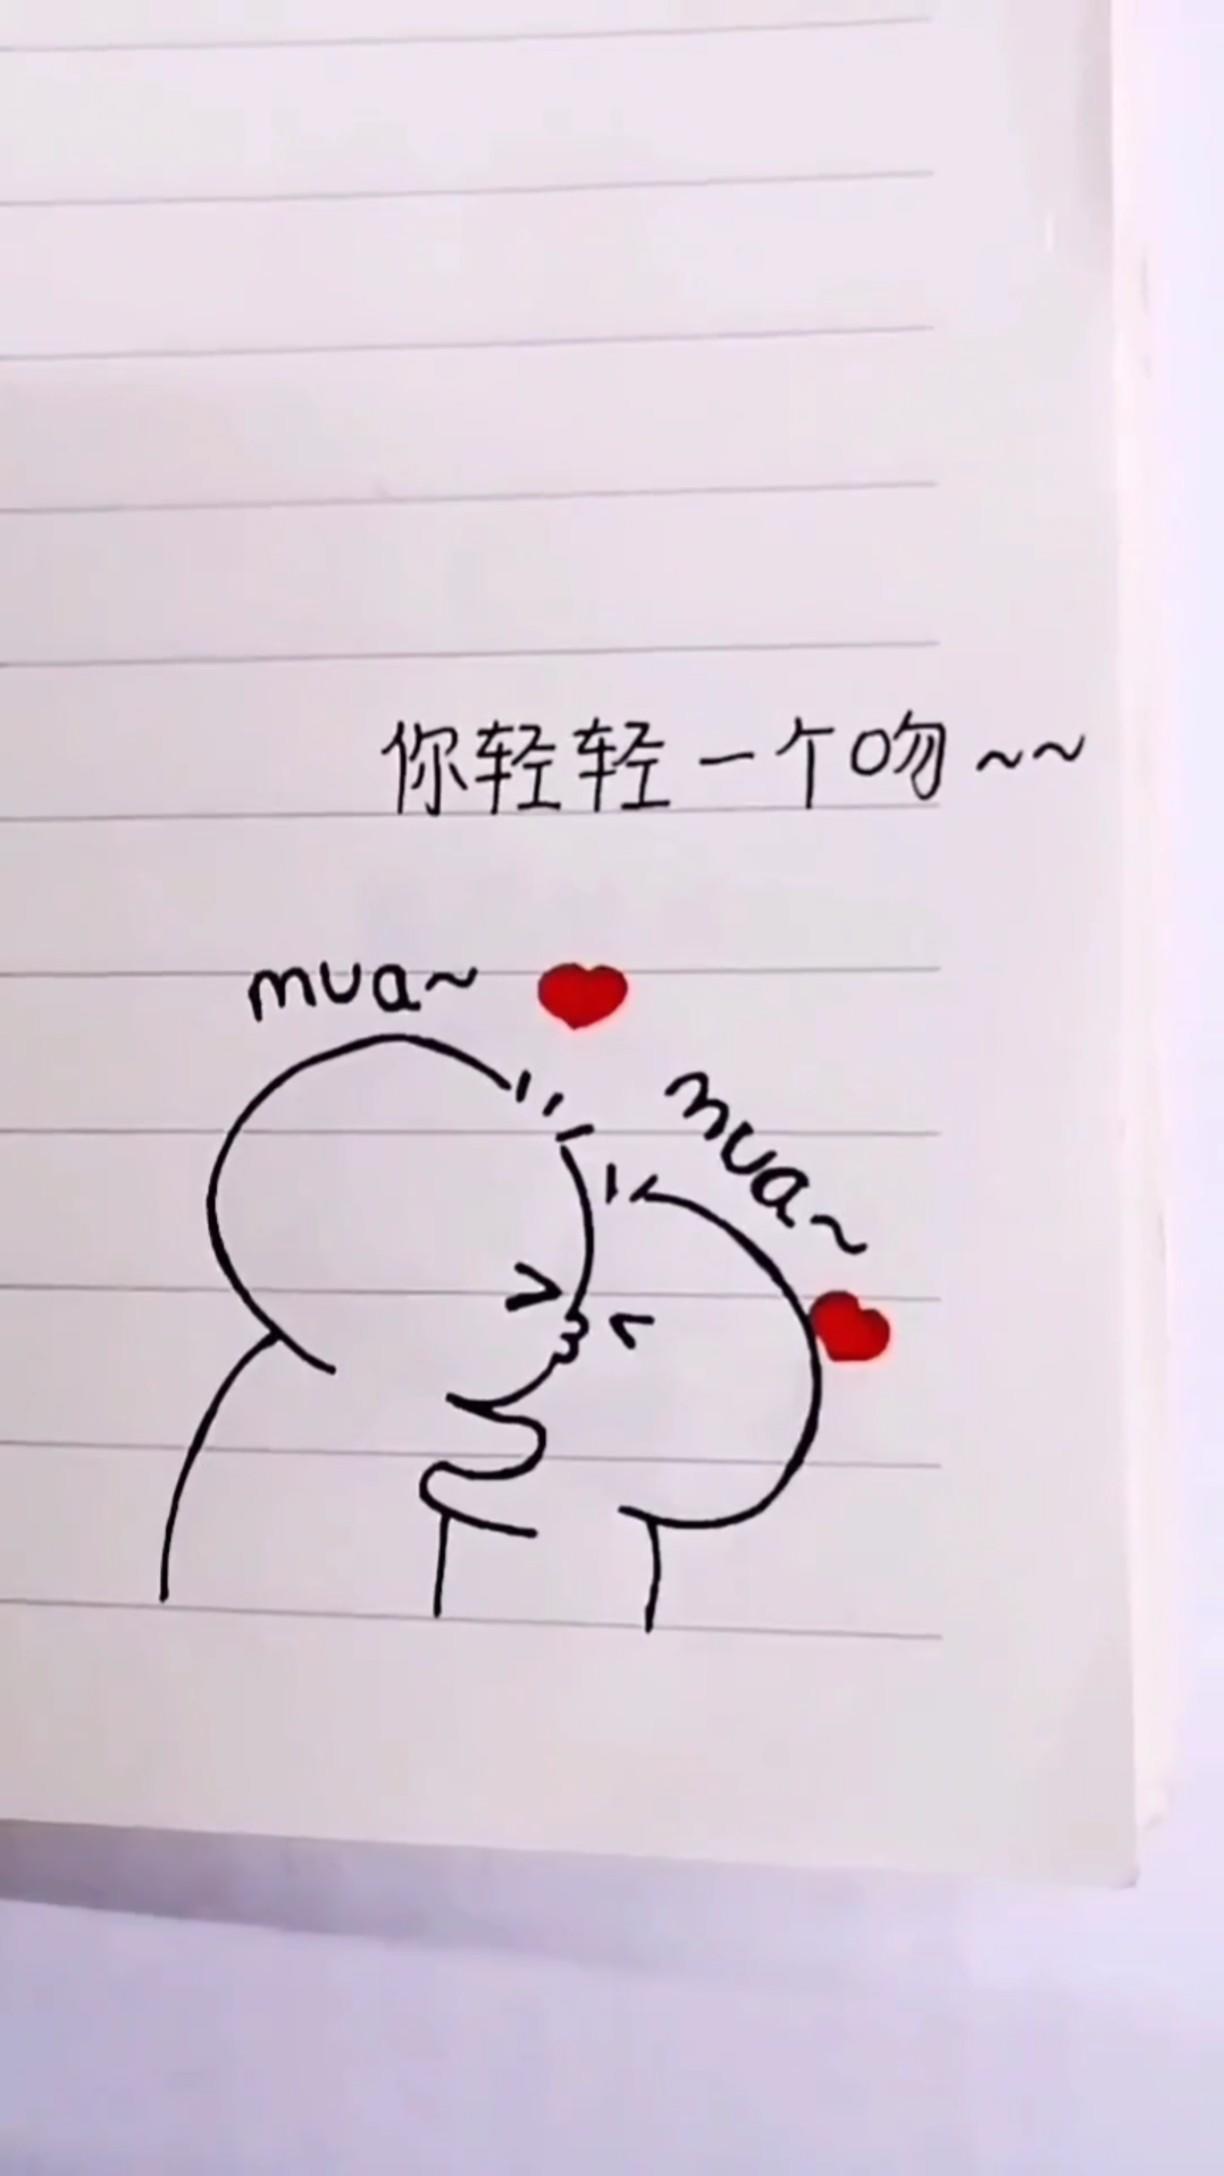 你轻轻一个吻~~
mua~
mua~